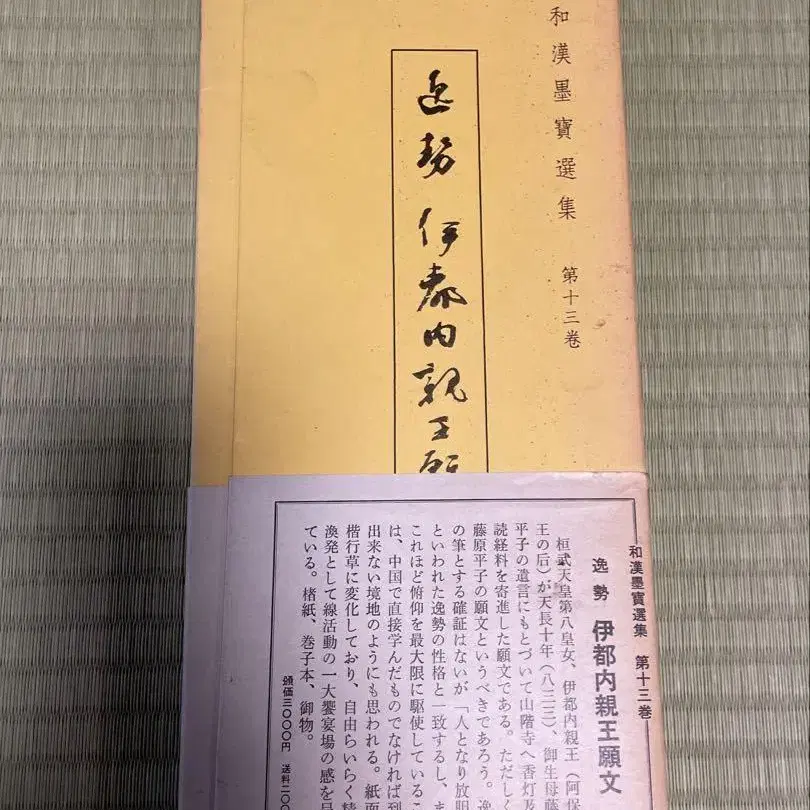 和漢墨寶選集 第十三巻
逸勢 伊都内親王願
和漢墨寶選集 第十三巻
逸勢 伊都内親王願文
桓武天皇第八皇女、伊都内親王（阿保
王の后）が天長十年（八三三）、御生母藤
平子の遺言にもとづいて山階寺へ香灯及
読経料を寄進した願文である。ただしく
藤原平子の願文というべきであろう。逸
の筆とする確証はないが「人となり放胆
といわれた逸勢の性格と一致するし、ま
これほど俯仰を最大限に駆使しているこ
は、中国で直接学んだものでなければ到
出来ない境地のようにも思われる。紙面
楷行草に変化しており、自由らいらく精
渙発として線活動の一大饗宴場の感を呈
ている。楮紙、巻子本、御物。
頒価三〇〇〇円 送料二〇〇